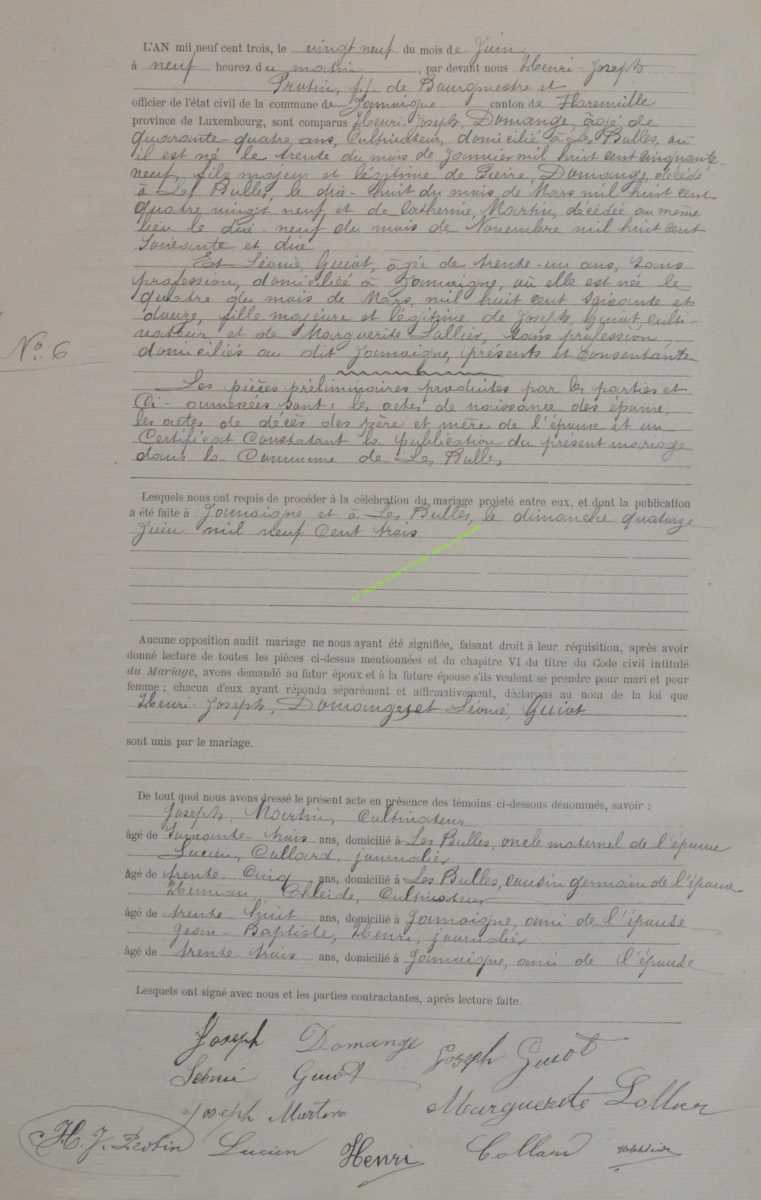 L'AN mil neuf cent trois, le vingt neuf du mois de Juin
à neuf heures du matin, par devant nous Henri-Joseph
Protin, ff. de Bourgmestre et
officier de l'état civil de la commune de Jamoigne canton de Florenville
province de Luxembourg, sont comparus Henri-Joseph, Domange, âgé de
quarante-quatre ans, Cultivateur, domicilié à Les Bulles, où
il est né le trente du mois de Janvier mil huit cent cinquante-
neuf, fils majeur et légitime de Pierre, Domange, décédé
à Les Bulles, le dix-huit du mois de Mars mil huit cent
quatre vingt neuf et de Catherine, Martin, décédée au même
lieu le dix-neuf du mois de Novembre mil huit cent
soixante et dix
Et Léonie, Guiot, âgée de trente-un ans, sans
profession, domiciliée à Jamoigne, où elle est née le
quatre du mois de Mars, mil huit cent soixante et
douze, fille majeure et légitime de Joseph, Guiot, culti-
vateur et de Marguerite Lallier, sans profession
domiciliés au dit Jamoigne, présents et consentants
No. 6
Les pièces préliminaires produites par les parties et
ci-annexées sont: les actes de naissance des époux,
les actes de décès des père et mère de l'époux et un
Certificat constatant la publication du présent mariage
dans la Commune de Les Bulles,
Lesquels nous ont requis de procéder à la célébration du mariage projeté entre eux, et dont la publication
a été faite à Jamoigne et à Les Bulles, le dimanche quatorze
Juin mil neuf cent trois
Aucune opposition audit mariage ne nous ayant été signifiée, faisant droit à leur réquisition, après avoir
donné lecture de toutes les pièces ci-dessus mentionnées et du chapitre VI du titre du Code civil intitulé
du Mariage, avons demandé au futur époux et à la future épouse s'ils veulent se prendre pour mari et pour
femme; chacun d'eux ayant répondu séparément et affirmativement, déclarons au nom de la loi que
Henri-Joseph, Domange, et Léonie, Guiot
sont unis par le mariage.
De tout quoi nous avons dressé le présent acte en présence des témoins ci-dessous dénommés, savoir :
Joseph, Martin, Cultivateur
âgé de soixante-trois ans, domicilié à Les Bulles, oncle maternel de l'époux
Lucien, Collard, journalier
âgé de trente cinq ans, domicilié à Les Bulles, cousin germain de l'époux
Cultivateur
âgé de trente huit ans, domicilié à Jamoigne, ami de l'épouse
Jean-Baptiste, Henri, journalier
âgé de trente trois ans, domicilié à Jamoigne, ami de l'épouse
Lesquels ont signé avec nous et les parties contractantes, après lecture faite.
Joseph Domange Joseph Guiot
Léonie Guiot
Joseph Martin Marguerite Lallier
H. J. Protin Lucien Henri Collard